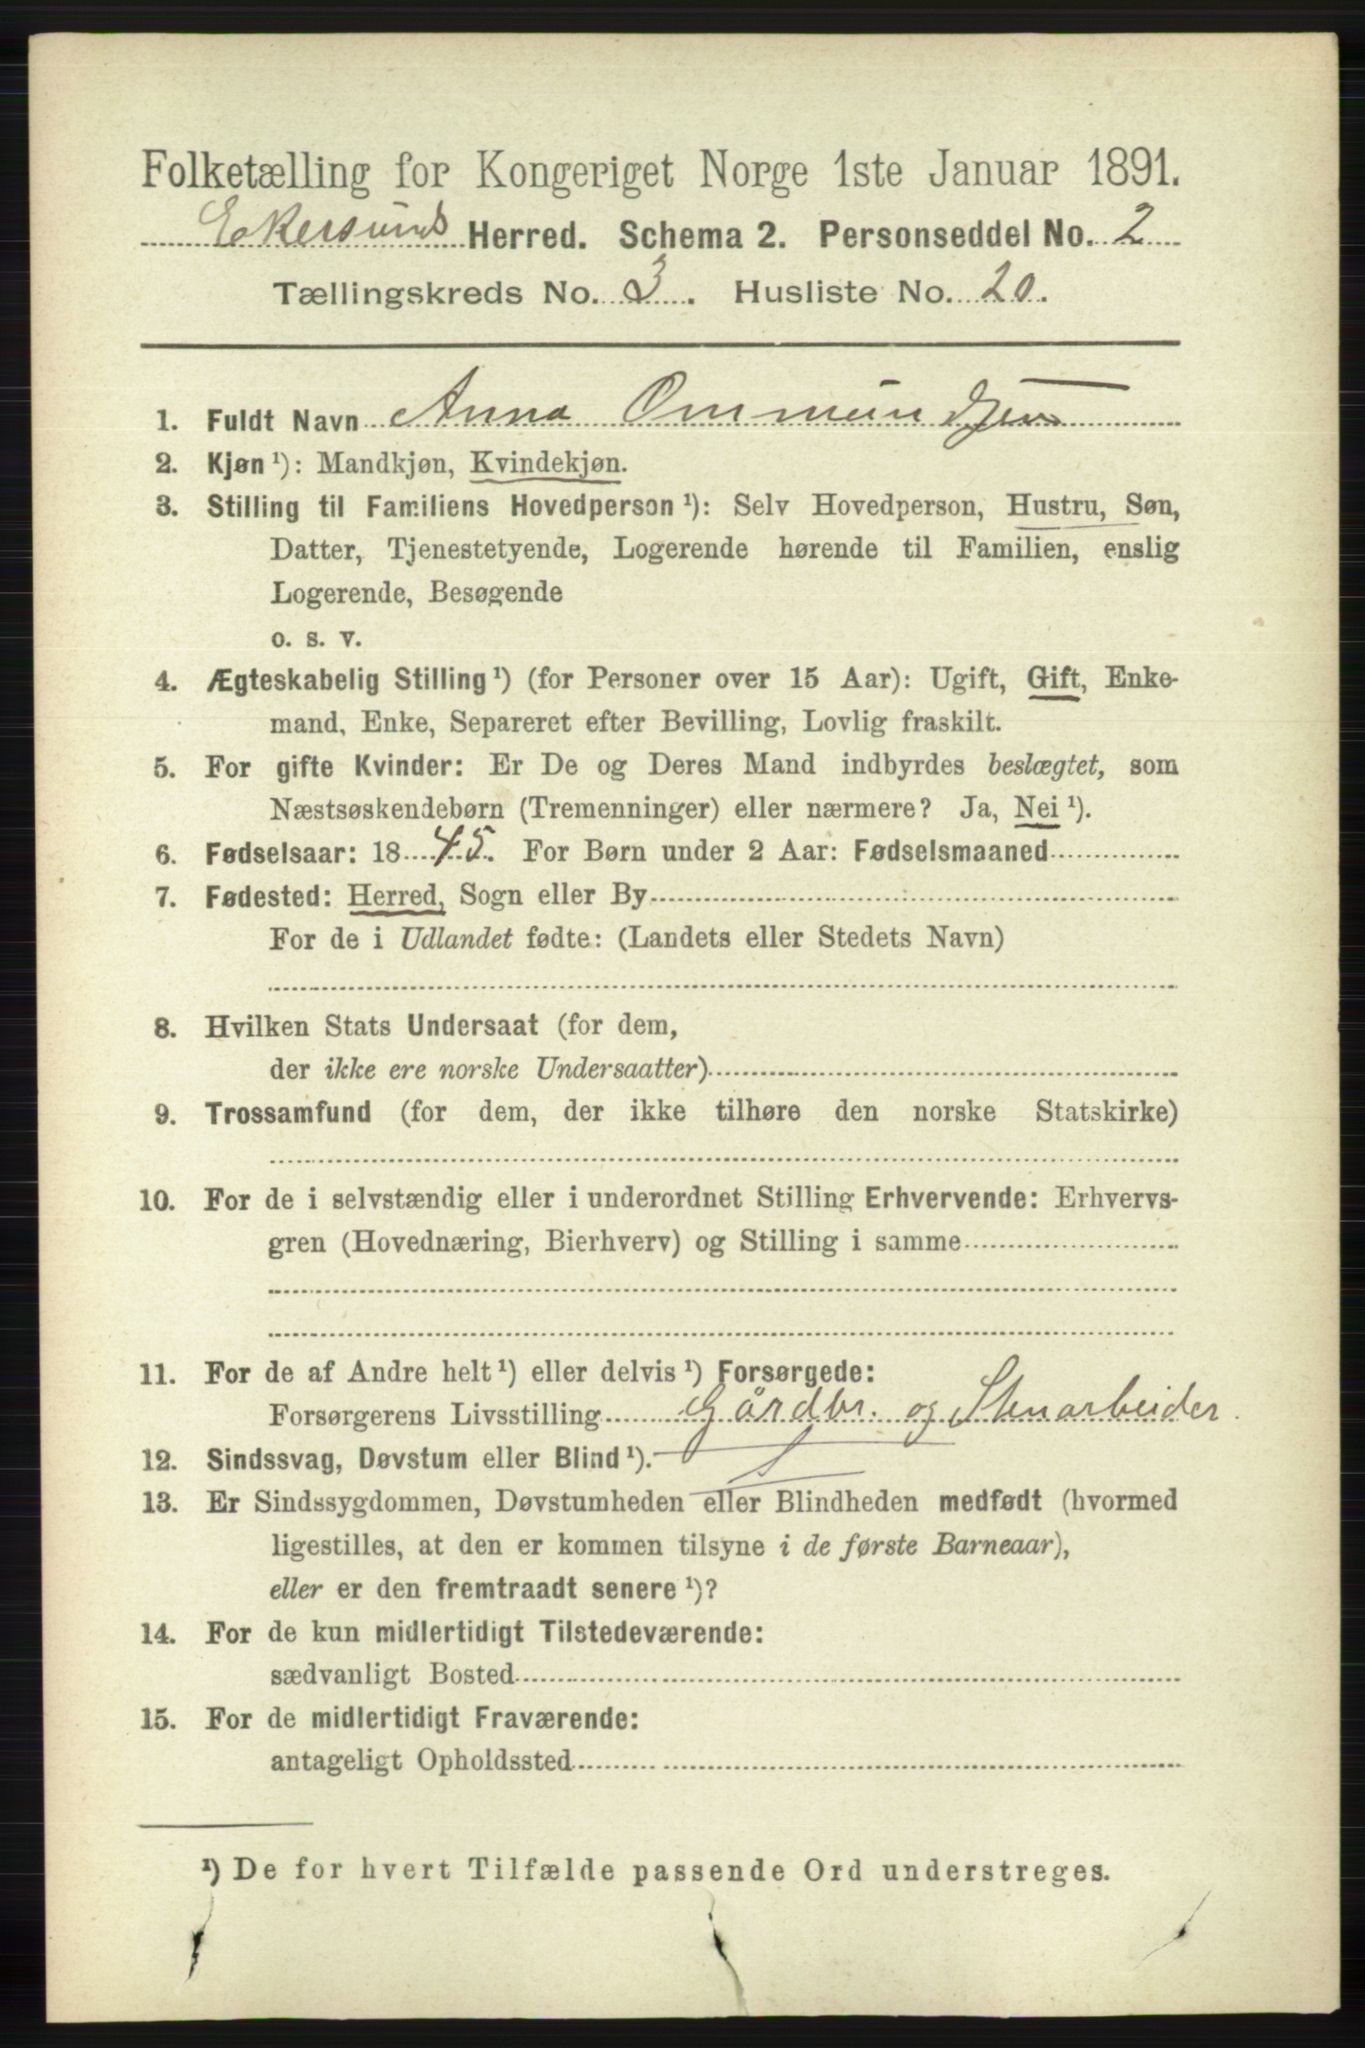 Folketælling for Kongeriget Norge 1ste Januar 1891.
Ekersunds Herred. Schema 2. Personseddel No. 2
Tællingskreds No. 3. Husliste No. 20.
1. Fuldt Navn Anna Ommundsen
2. Kjøn ¹): Mandkjøn, Kvindekjøn.
3. Stilling til Familiens Hovedperson ¹): Selv Hovedperson, Hustru, Søn,
Datter, Tjenestetyende, Logerende hørende til Familien, enslig
Logerende, Besøgende
o. s. v.
4. Ægteskabelig Stilling ¹) (for Personer over 15 Aar): Ugift, Gift, Enke-
mand, Enke, Separeret efter Bevilling, Lovlig fraskilt.
5. For gifte Kvinder: Er De og Deres Mand indbyrdes beslægtet, som
Næstsøskendebørn (Tremenninger) eller nærmere? Ja, Nei ¹).
6. Fødselsaar: 1845. For Børn under 2 Aar: Fødselsmaaned
7. Fødested: Herred, Sogn eller By
For de i Udlandet fødte: (Landets eller Stedets Navn)
8. Hvilken Stats Undersaat (for dem,
der ikke ere norske Undersaatter)
9. Trossamfund (for dem, der ikke tilhøre den norske Statskirke)
10. For de i selvstændig eller i underordnet Stilling Erhvervende: Erhvervs-
gren (Hovednæring, Bierhverv) og Stilling i samme
11. For de af Andre helt ¹) eller delvis ¹) Forsørgede:
Forsørgerens Livsstilling Gårdbr. og Stenarbeider.
12. Sindssvag, Døvstum eller Blind ¹).
13. Er Sindssygdommen, Døvstumheden eller Blindheden medfødt (hvormed
ligestilles, at den er kommen tilsyne i de første Barneaar),
eller er den fremtraadt senere ¹)?
14. For de kun midlertidigt Tilstedeværende:
sædvanligt Bosted
15. For de midlertidigt Fraværende:
antageligt Opholdssted
¹) De for hvert Tilfælde passende Ord understreges.